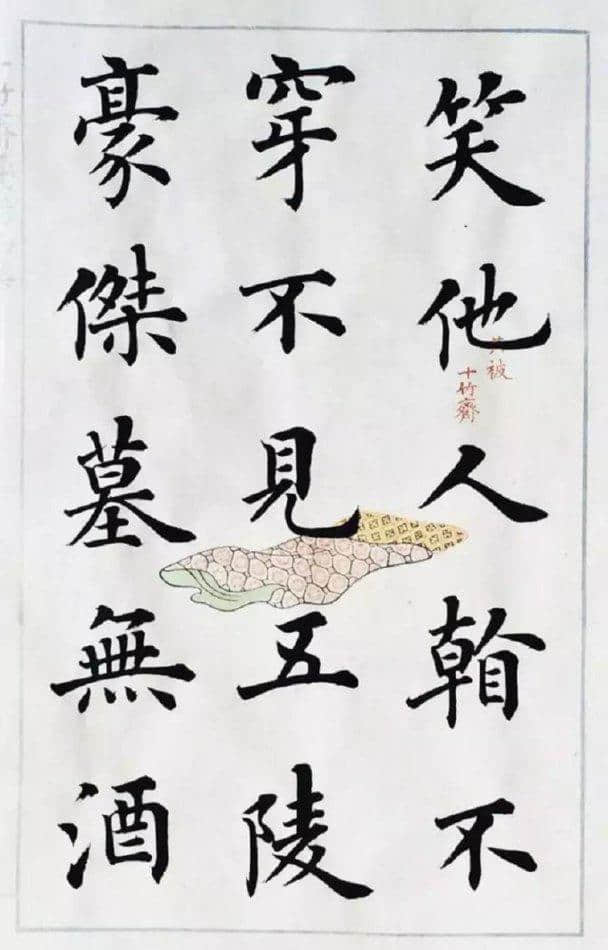 笑他人不
穿不見五陵
豪傑墓無酒
被
十竹齋